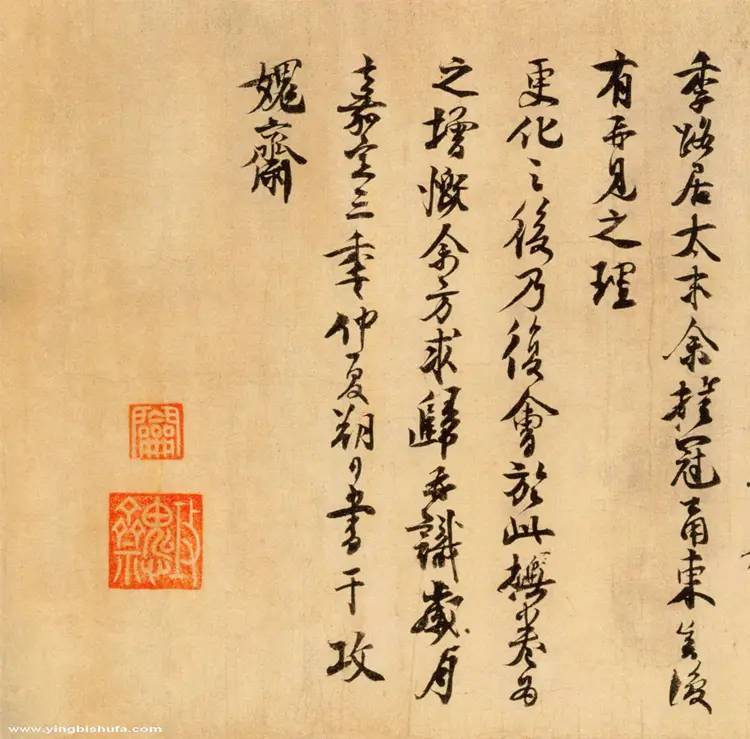 季路居太末余挂冠甬東無復
有再見之理
更化之後乃復會於此撫卷為
之增慨余方求歸再識歲月
嘉定三季仲夏朔日書于攻
媿齋
www.yingbishufa.com